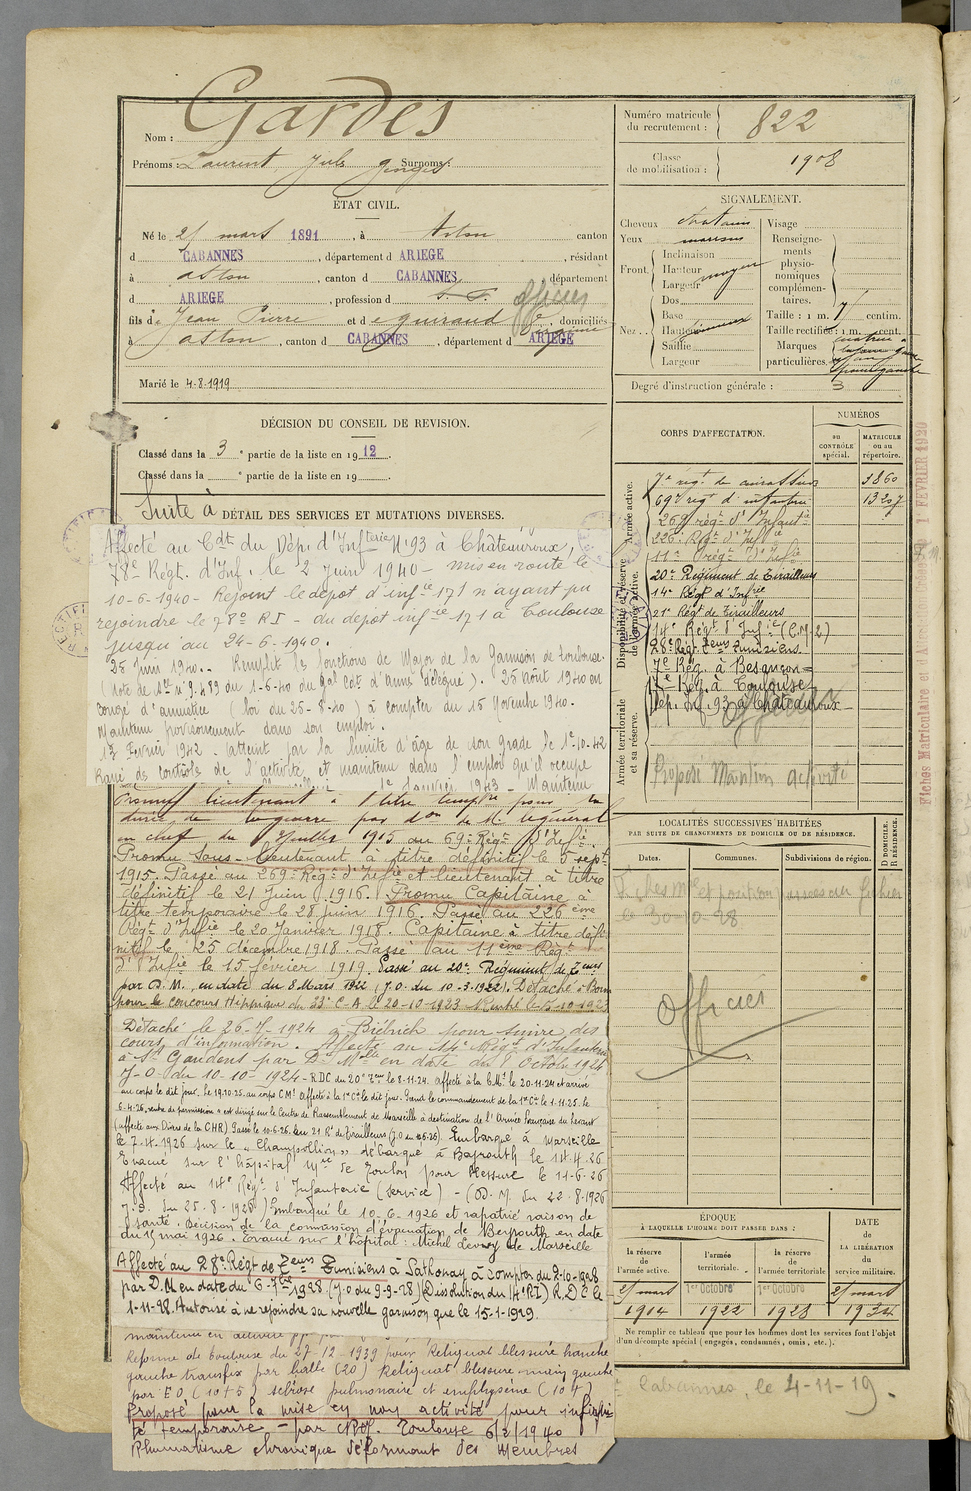 Nom : Gardes
Prénoms : Laurent Jules Georges Surnoms :
ÉTAT CIVIL.
Né le 25 mars 1891, à Aston canton
d CABANNES, département d ARIEGE, résidant
à Aston, canton d CABANNES, département
d ARIEGE, profession d officier
fils de Jean Pierre et de Guiraud, domiciliés
à Aston, canton d CABANNES, département d ARIEGE
Marié le 4.8.1919
DÉCISION DU CONSEIL DE REVISION.
Classé dans la 3e partie de la liste en 1912
Classé dans la e partie de la liste en 19
Suite à DÉTAIL DES SERVICES ET MUTATIONS DIVERSES.
Affecté au Cdt du Dép. d'Infterie N°93 à Châteauroux,
78e Régt. d'Inf. le 2 Juin 1940 - mis en route le
10-6-1940 - Rejoint le dépot d'infie 171 n'ayant pu
rejoindre le 78e RI - du depot infie 171 à Toulouse
jusqu'au 24-6-1940.
25 Juin 1940. - Remplit les fonctions de Major de la Garnison de Toulouse.
(Note de n° 9.489 du 1-6-40 du Gal Cdt d'armes délégué). (25 Aout 1940 en
congé d'armistice loi du 25-8-40) à compter du 15 Novembre 1940.
Maintenu provisoirement dans son emploi.
13 Fevrier 1942 (atteint par la limite d'âge de son grade le 1er-10-42
Rayé des contrôles de l'activité et maintenu dans l'emploi qu'il occupe
1er Janvier 1943 - Maintenu
Promu lieutenant à titre tempre pour la
durée de la guerre par don de Mr le général
en chef du Juillet 1915 au 69e Régt d'Infie.
Promu Sous-lieutenant a titre définitif le 5 sept.
1915. Passé au 269e Régt d'Infie et lieutenant à titre
définitif le 21 Juin 1916. Promu Capitaine à
titre temporaire le 28 juin 1916. Passé au 226ème
Régt d'Infie le 20 Janvier 1918. Capitaine à titre défi-
nitif le 25 décembre 1918. Passé au 11ème Régt
d'Infie le 15 février 1919. Passé au 20e Régiment de Teurs
par D.M. en date du 8 Mars 1922 (J.O. du 10-3-1922). Détaché à
pour le concours Hippique du C.A. le 20-10-1923 Rentré le 10 1923
Détaché le 26-7-1924 à Biétrich pour suivre des
cours d'information. Affecté au 14e Régt d'Infanterie
à St Gaudens par Don Mlle en date du 1er Octobre 1924
J-O du 10-10-1924 - RDC du 20e Teur le 8-11-24. Affecté à la C.M1 le 20-11-24 et arrivé
au corps le dit jour. Le 19.10.25 au corps CM1 Affecté à la 1re Cie le dit jour. Prend le commandement de la 1re Cie le 1-11-25. Le
6-4-26, rentré de permission et est dirigé sur le Centre de Rassemblement de Marseille à destination de l'Armée Française du Levant
(affecté aux Divers de la CHR) Passé le 10-6-26 au 21 Rt de Tirailleurs (J.O. 6.26). Embarqué à Marseille
le 7-4-1926 sur le "Champollion" débarqué à Beyrouth le 14-4-26
Evacué sur l'hôpital Mre de Toulon pour blessure le 11-6-26
Affecté au 14e Régt d'Infanterie (service) - (D.M. du 22-8-1926
J.O. du 25-8-1926) Embarqué le 10-6-1926 et rapatrié raison de
santé. Décision de la commission d'évacuation de Beyrouth en date
du 15 mai 1926. Evacué sur l'hôpital : Michel Levy de Marseille
Affecté au 28e Régt de Teurs Tunisiens à Sathonay à compter du 2-10-1928
par D.M. en date du 6-7bre 1928 (J.O. du 9-9-28) (Dissolution du 14e RI) R.D.C le
1-11-28. Autorisé à ne rejoindre sa nouvelle garnison que le 15-1-1929.
maintenu en activité
Réforme de Toulouse du 27-12-1939 pour Reliquat blessure hanche
gauche transfix par balle (20) Reliquat blessure main gauche
par E O (10+5) sclérose pulmonaire et emphysème (10+)
Proposé pour la mise en non activité pour infirmi-
té temporaire - par CRof. Toulouse 6/2/1940
Rhumatisme chronique déformant des Membres
Numéro matricule du recrutement : 822
Classe de mobilisation : 1908
SIGNALEMENT.
Cheveux chatains
Yeux marrons
Front. Inclinaison
Hauteur moyen
Largeur
Nez. Dos
Base
Hauteur
Saillie
Largeur
Visage
Renseigne-
ments
physio-
nomiques
complémen-
taires.
Taille : 1 m. 7 centim.
Taille rectifiée : 1 m. cent.
Marques
particulières.
Degré d'instruction générale : 3
CORPS D'AFFECTATION.
NUMÉROS
au CONTRÔLE spécial.
MATRICULE ou au répertoire.
Armée active.
7e régt de cuirassiers 3860
69e régt d'infanterie 13207
Disponibilité et réserve de l'armée active.
269e régt d'Infantie
226e Régt d'Infie
11e régt d'Infie
20e Régiment de Tirailleurs
14e Régt d'Infrie
21e Régt de Tirailleurs
14e Régt d'Infie (C.M.2)
28e Régt Teurs Tunisiens.
7e Rég. à Besançon
Armée territoriale et sa réserve.
7e Rég. à Toulouse
Dép. Inf. 93 à Châteauroux
Officier
Proposé Maintien activité
LOCALITÉS SUCCESSIVES HABITÉES
PAR SUITE DE CHANGEMENTS DE DOMICILE OU DE RÉSIDENCE.
Dates. Communes. Subdivisions de région.
D DOMICILE.
R RÉSIDENCE.
Fiches Mle et position passées au fichier
le 30-10-28
Officier
ÉPOQUE
À LAQUELLE L'HOMME DOIT PASSER DANS :
la réserve de l'armée active.
l'armée territoriale.
la réserve de l'armée territoriale
DATE DE LA LIBÉRATION du service militaire.
25 mars 1er Octobre 1er Octobre 25 mars
1914 1922 1928 1934
Ne remplir ce tableau que pour les hommes dont les services font l'objet
d'un décompte spécial (engagés, condamnés, omis, etc.).
Cabannes, le 4-11-19.
1 FEVRIER 1920